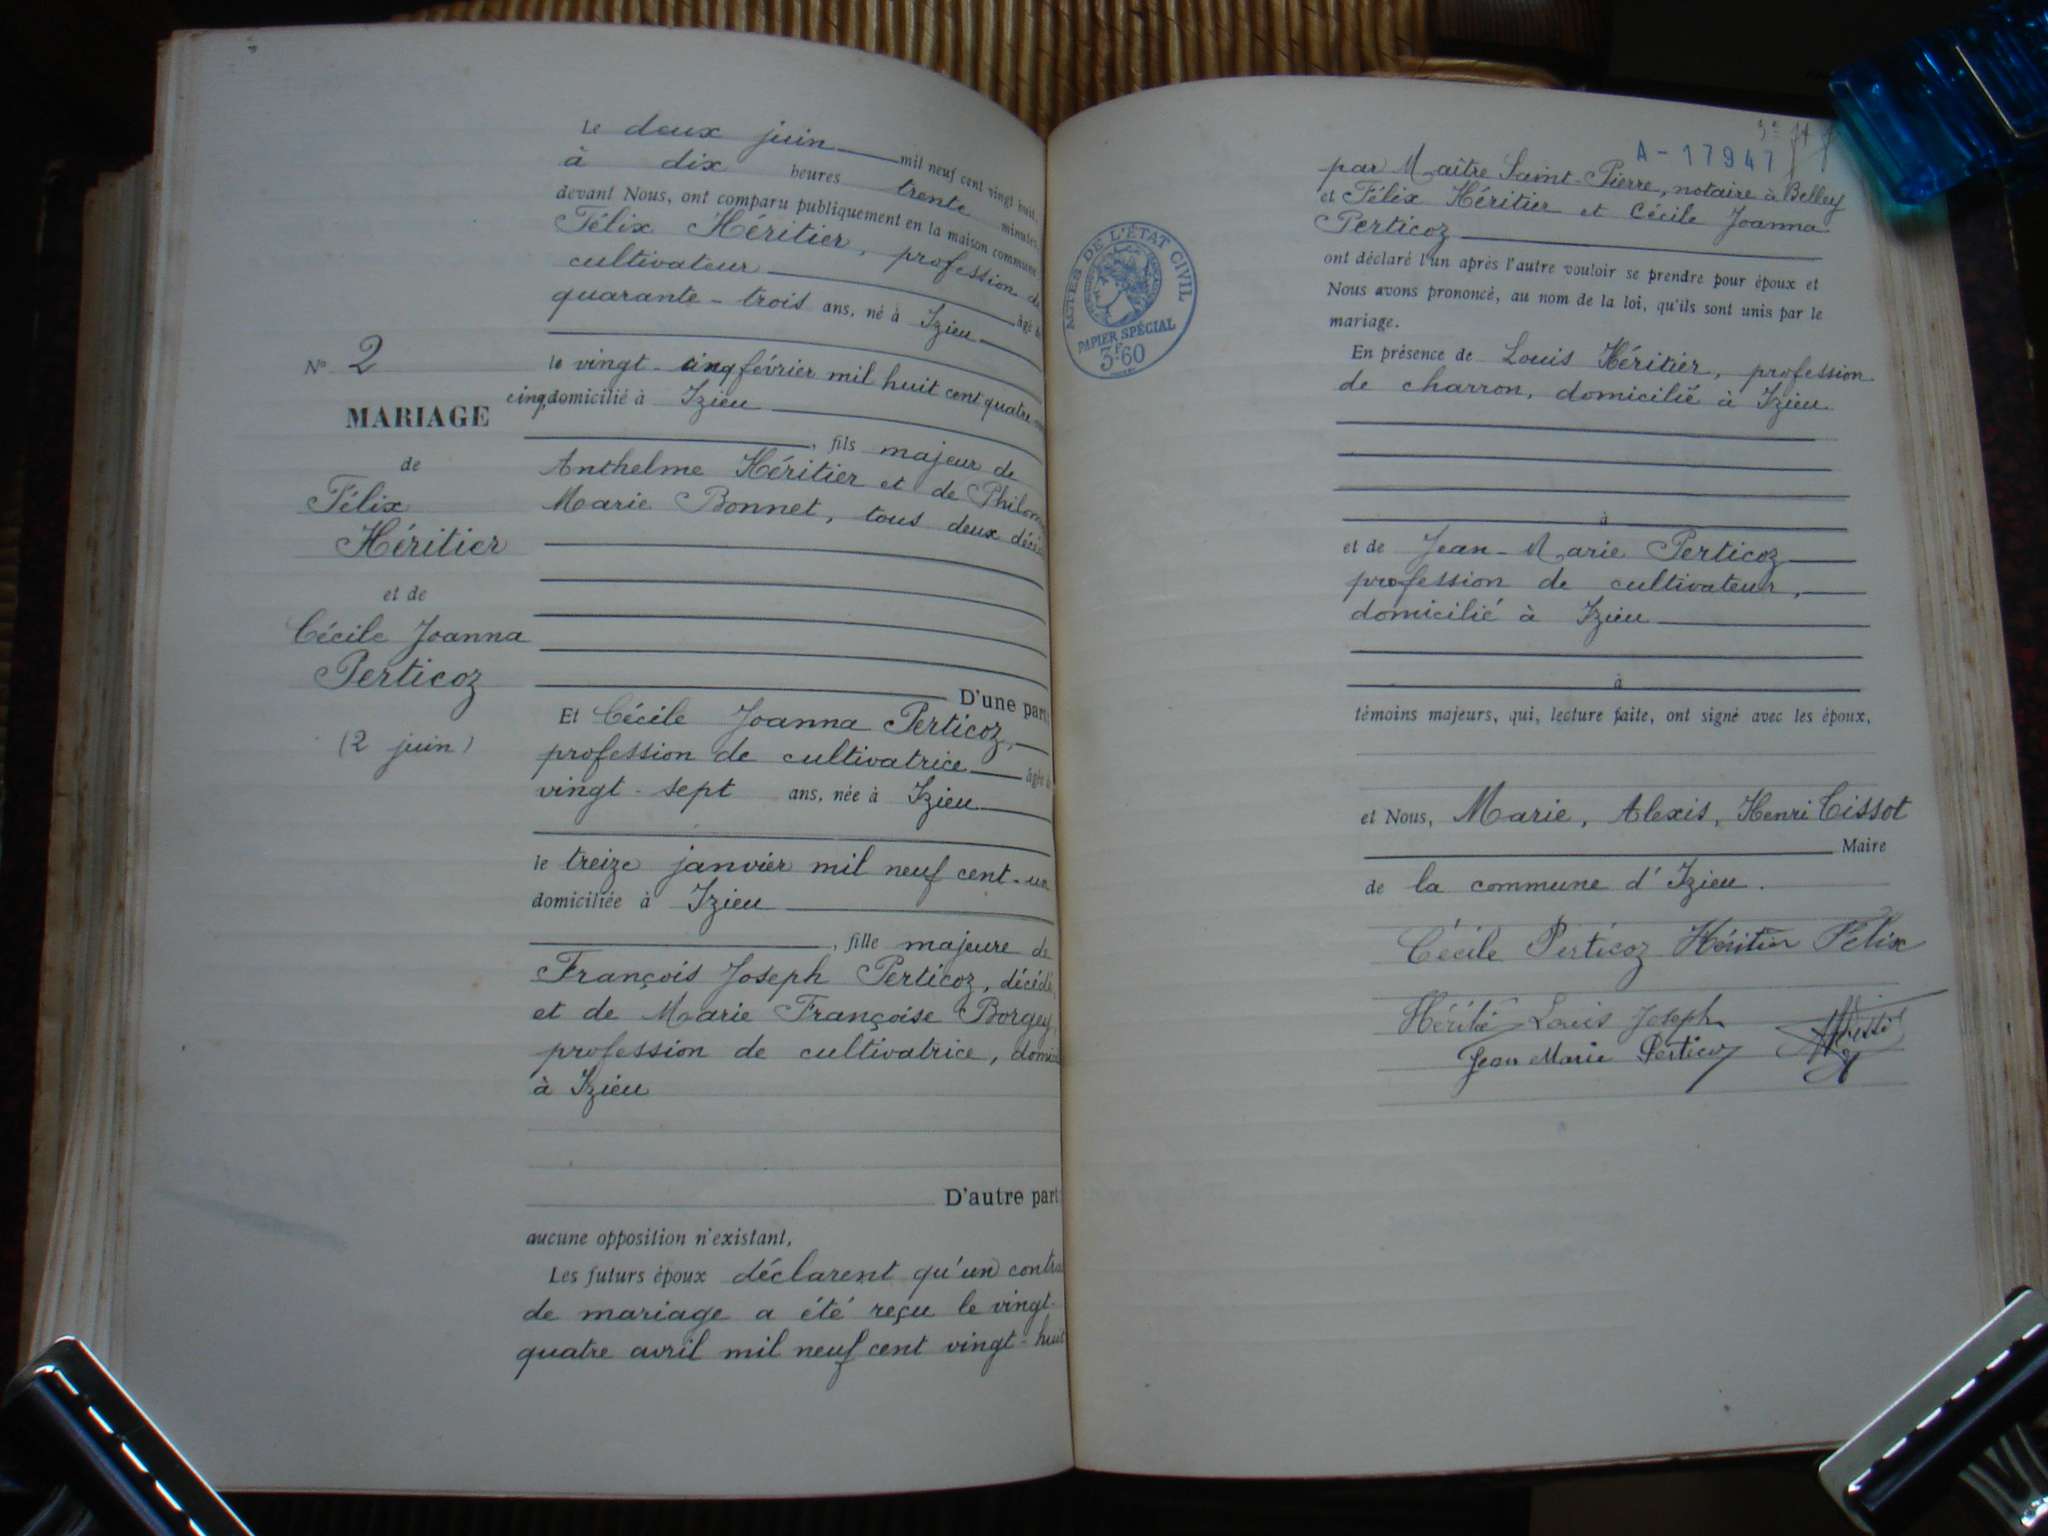 Le deux juin mil neuf cent vingt huit,
à dix heures trente minutes,
devant Nous, ont comparu publiquement en la maison commune
Félix Héritier, profession de
cultivateur âgé de
quarante-trois ans, né à Izieu
le vingt-cinq février mil huit cent quatre
cinq, domicilié à Izieu
, fils majeur de
Anthelme Héritier et de
Marie Bonnet, tous deux
D'une part
Et Cécile Joanna Perticoz,
profession de cultivatrice âgée de
vingt-sept ans, née à Izieu
le treize janvier mil neuf cent-un
domiciliée à Izieu
, fille majeure de
François Joseph Perticoz, décédé,
et de Marie Françoise Borgey,
profession de cultivatrice,
à Izieu
D'autre part
aucune opposition n'existant,
Les futurs époux déclarent qu'un
de mariage a été reçu le vingt-
quatre avril mil neuf cent vingt-huit
No 2
MARIAGE
de
Félix
Héritier
et de
Cécile Joanna
Perticoz
(2 juin)
A-17947
par Maître Saint-Pierre, notaire à Belley
et Félix Héritier et Cécile Joanna
Perticoz
ont déclaré l'un après l'autre vouloir se prendre pour époux et
Nous avons prononcé, au nom de la loi, qu'ils sont unis par le
mariage.
En présence de Louis Héritier, profession
de charron, domicilié à Izieu.
à
et de Jean-Marie Perticoz
profession de cultivateur,
domicilié à Izieu
à
témoins majeurs, qui, lecture faite, ont signé avec les époux,
et Nous, Marie, Alexis, Henri Tissot
Maire
de la commune d'Izieu.
Cécile Perticoz Héritier Félix
Louis Joseph
Jean Marie Perticoz
ACTES DE L'ÉTAT CIVIL
PAPIER SPÉCIAL
3F60